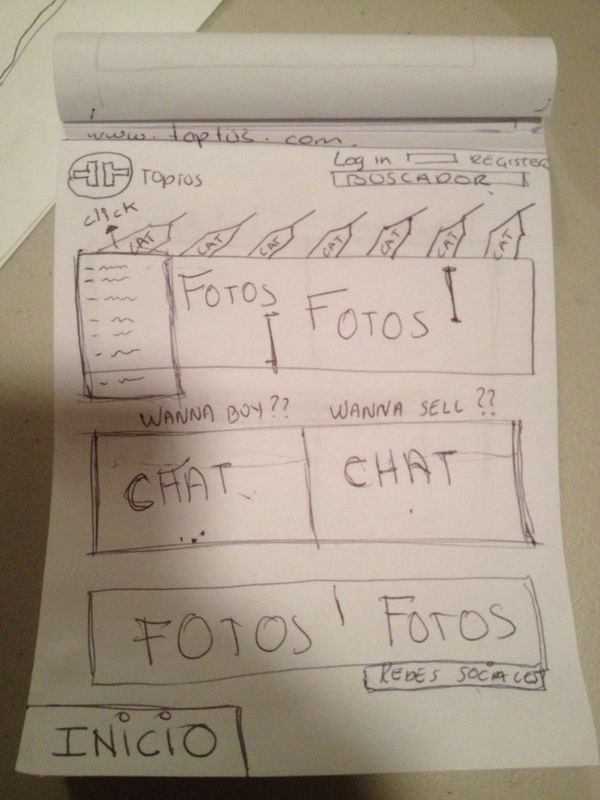 www.toptus.com.
Log in REGISTER
TOPTUS BUSCADOR
click
CAT CAT CAT CAT CAT CAT CAT
FOTOS FOTOS
WANNA BUY?? WANNA SELL??
CHAT CHAT
FOTOS FOTOS
REDES SOCIALES
INICIO